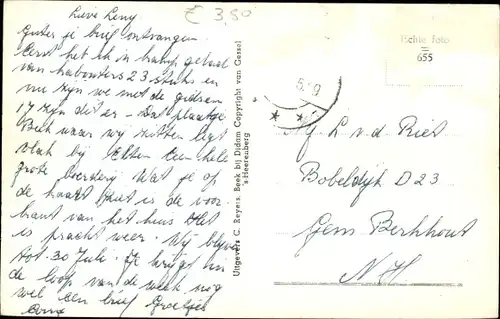 Lieve Leny
£ 3,50
Gister je brief ontvangen.
Eerst het ik in kamp gehad
van kabouters 23 stuks en
nu zijn we met de gidsen
17 zijn dit er - Dat plaatje
Beek waar wij zitten ligt
vlak bij Elten Een hele
grote boerderij Wat je op
de kaart ziet is de voor-
kant van het huis Het
is pracht weer. Wij blijven
tot 30 Juli. Je krijgt in
de loop van de week nog
wel een brief Groetjes
Uitgevers C. Reyers, Beek bij Didam Copyright van Gessel
's Heerenberg
Echte foto
655
Mej L v.d. Riet
Bobeldijk D 23
Gem Berkhout
N H